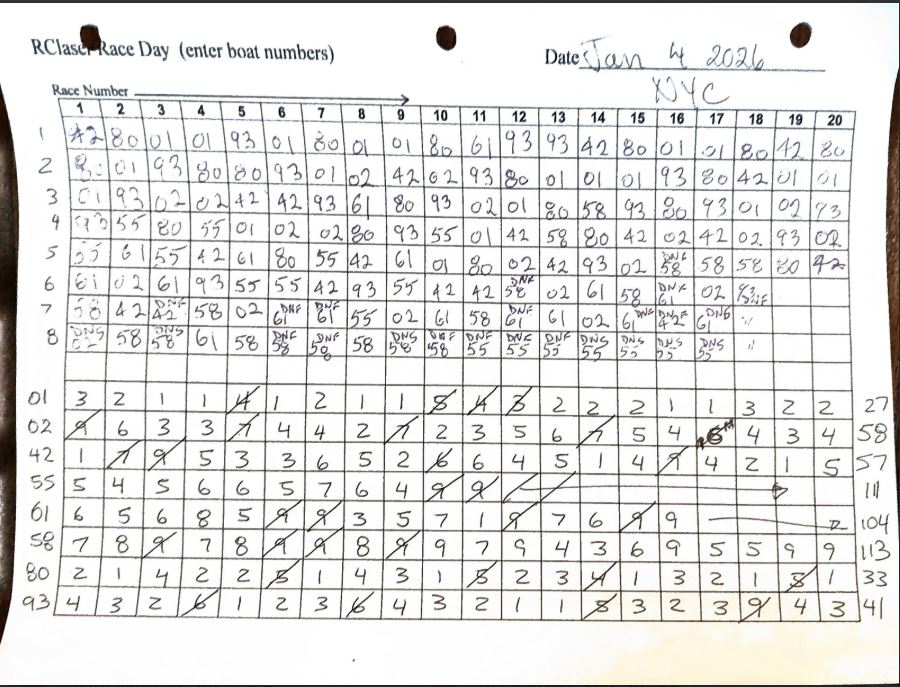 RClaser Race Day (enter boat numbers) Date Jan 4 2026
Race Number NYC
1 2 3 4 5 6 7 8 9 10 11 12 13 14 15 16 17 18 19 20
1 42 80 01 01 93 01 80 01 01 80 61 93 93 42 80 01 01 80 42 80
2 80 01 93 80 80 93 01 02 42 02 93 80 01 01 01 93 80 42 01 01
3 01 93 02 02 42 42 93 61 80 93 02 01 80 58 93 80 93 01 02 93
4 93 55 80 55 01 02 02 80 93 55 01 42 58 80 42 02 42 02 93 02
5 55 61 55 42 61 80 55 42 61 01 80 02 42 93 02 DNF 58 58 58 80 42
6 61 02 61 93 55 55 42 93 55 42 42 DNF 58 02 61 58 DNF 61 02 93 DNF
7 58 42 DNF 42 58 02 DNF 61 DNF 61 55 02 61 58 DNF 61 61 02 61 DNF DNF 42 DNS 61
8 DNS 02 58 DNS 58 61 58 DNF 58 DNF 58 58 DNS 58 DNF 58 DNF 55 DNF 55 DNF 55 DNS 55 DNS 55 DNS 55 DNS 55
01 3 2 1 1 4 1 2 1 1 5 4 3 2 2 2 1 1 3 2 2 27
02 9 6 3 3 7 4 4 2 7 2 3 5 6 7 5 4 6 4 3 4 58
42 1 7 9 5 3 3 6 5 2 6 6 4 5 1 4 9 4 2 1 5 57
55 5 4 5 6 6 5 7 6 4 9 9 111
61 6 5 6 8 5 9 9 3 5 7 1 9 7 6 9 9 104
58 7 8 9 7 8 9 9 8 9 9 7 9 4 3 6 9 5 5 9 9 113
80 2 1 4 2 2 5 1 4 3 1 5 2 3 4 1 3 2 1 5 1 33
93 4 3 2 6 1 2 3 6 4 3 2 1 1 5 3 2 3 9 4 3 41